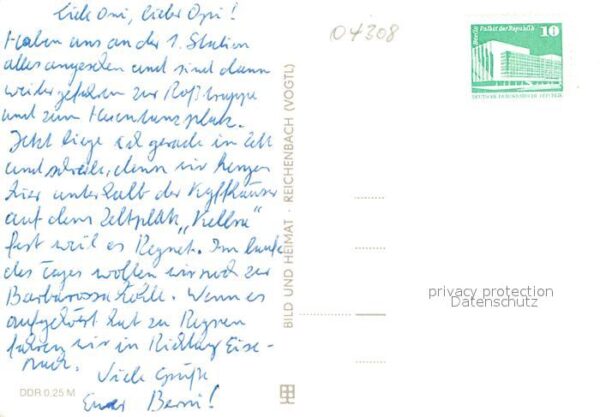 Liebe Omi, lieber Opi!
Haben uns an der 1. Station
alles angesehen und sind dann
weitergefahren zur Roßtrappe
und zum Hexentanzplatz.
Jetzt liege ich gerade im Zelt
und schreibe, denn wir hängen
hier unterhalb der Kyffhäuser
auf dem Zeltplatz „Kelbra"
fest weil es Regnet. Im laufe
des Tages wollen wir noch zur
Barbarossa Höhle. Wenn es
aufgehört hat zu Regnen
fahren wir in Richtung Eise-
nach.
Viele Grüße
Euer Berni!
DDR 0,25 M
BILD UND HEIMAT · REICHENBACH (VOGTL)
04308
Berlin Palast der Republik 10
DEUTSCHE DEMOKRATISCHE REPUBLIK
privacy protection
Datenschutz